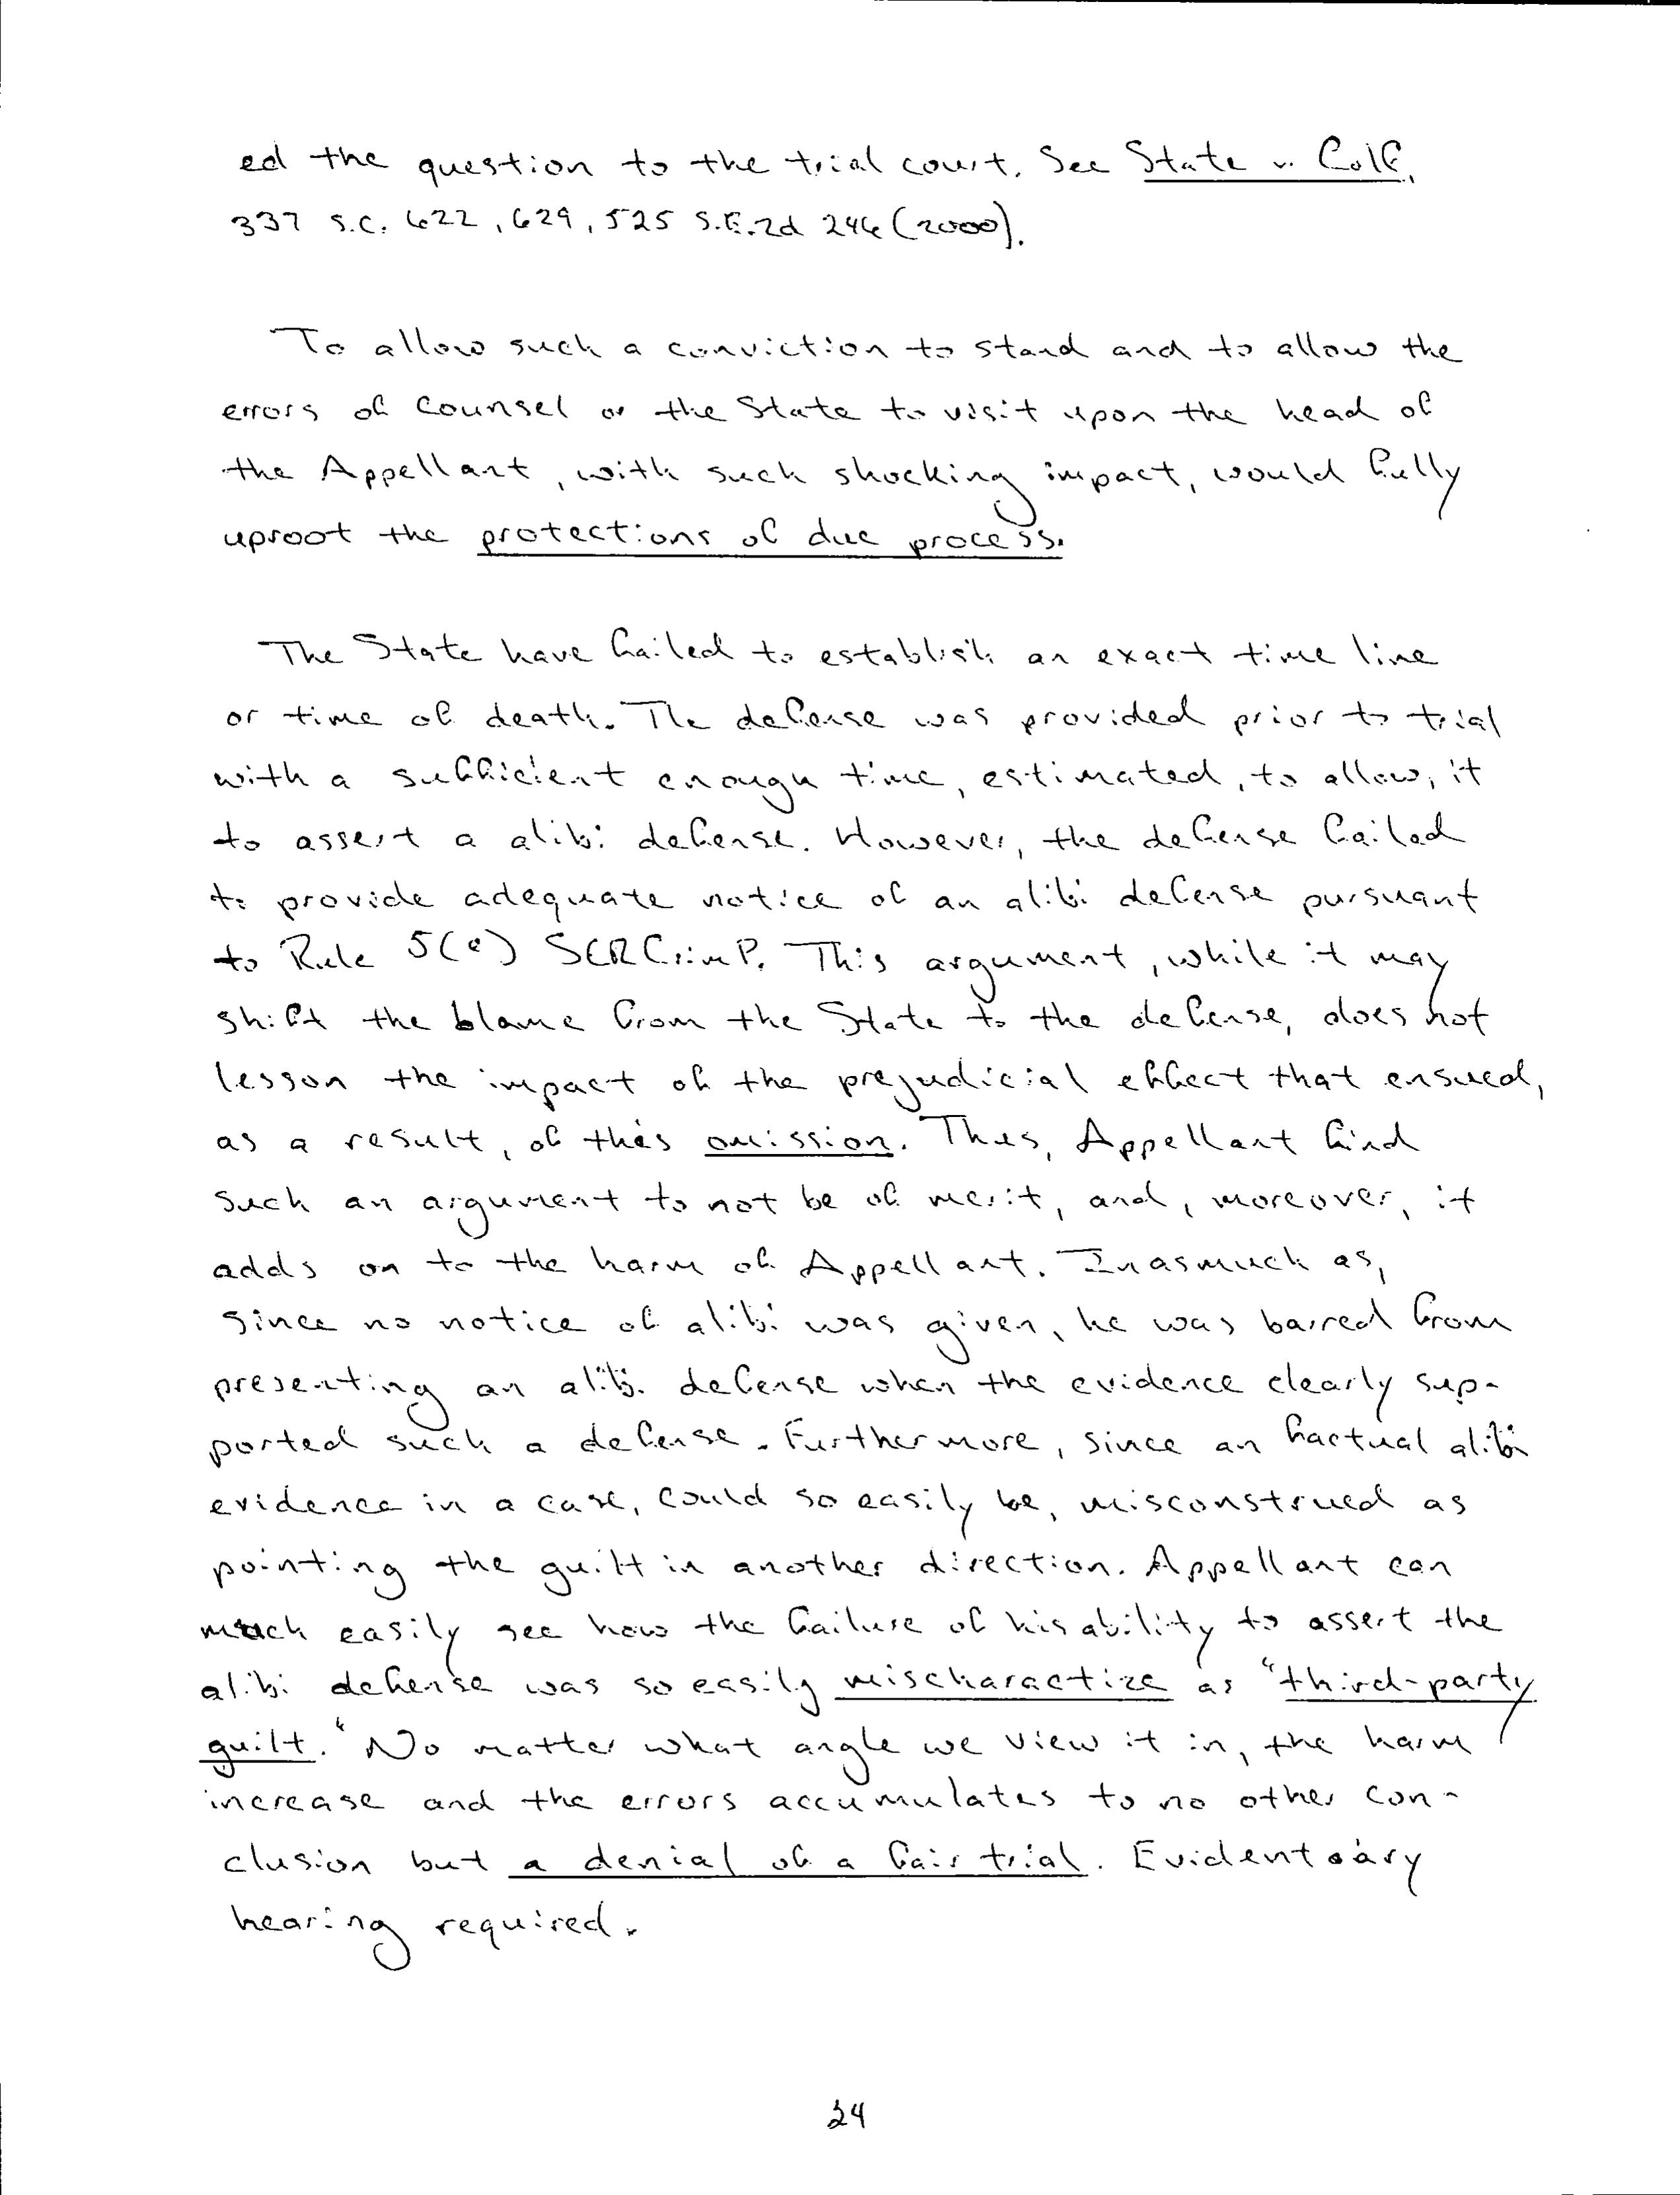 ed the question to the trial court. See State v. Colf,
337 S.C. 622, 629, 525 S.E.2d 246 (2000).
To allow such a conviction to stand and to allow the
errors of counsel or the State to visit upon the head of
the Appellant, with such shocking impact, would fully
uproot the protections of due process.
The State have failed to establish an exact time line
or time of death. The defense was provided prior to trial
with a sufficient enough time, estimated, to allow, it
to assert a alibi defense. However, the defense failed
to provide adequate notice of an alibi defense pursuant
to Rule 5(e) SCRCrimP. This argument, while it may
shift the blame from the State to the defense, does not
lesson the impact of the prejudicial effect that ensued,
as a result, of this omission. Thus, Appellant find
such an argument to not be of merit, and, moreover, it
adds on to the harm of Appellant. Inasmuch as,
since no notice of alibi was given, he was barred from
presenting an alibi defense when the evidence clearly sup-
ported such a defense. Furthermore, since an factual alibi
evidence in a case, could so easily be, misconstrued as
pointing the guilt in another direction. Appellant can
much easily see how the failure of his ability to assert the
alibi defense was so easily mischaractize as "third-party
guilt." No matter what angle we view it in, the harm
increase and the errors accumulates to no other con-
clusion but a denial of a fair trial. Evidentiary
hearing required.
24